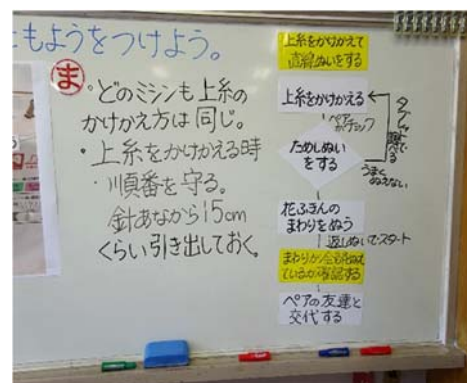 もようをつけよう。
ま
・どのミシンも上糸の
かけかえ方は同じ。
・上糸をかけかえる時
・順番を守る。
針あなから15cm
くらい引き出しておく。
上糸をかけかえて
直線ぬいをする
上糸をかけかえる
ペアで
チェック
ためしぬい
をする
うまく
ぬえない
花ふきんの
まわりをぬう
返しぬいでスタート
まわりが全部ぬえ
ているか確認する
ペアの友達と
交代する